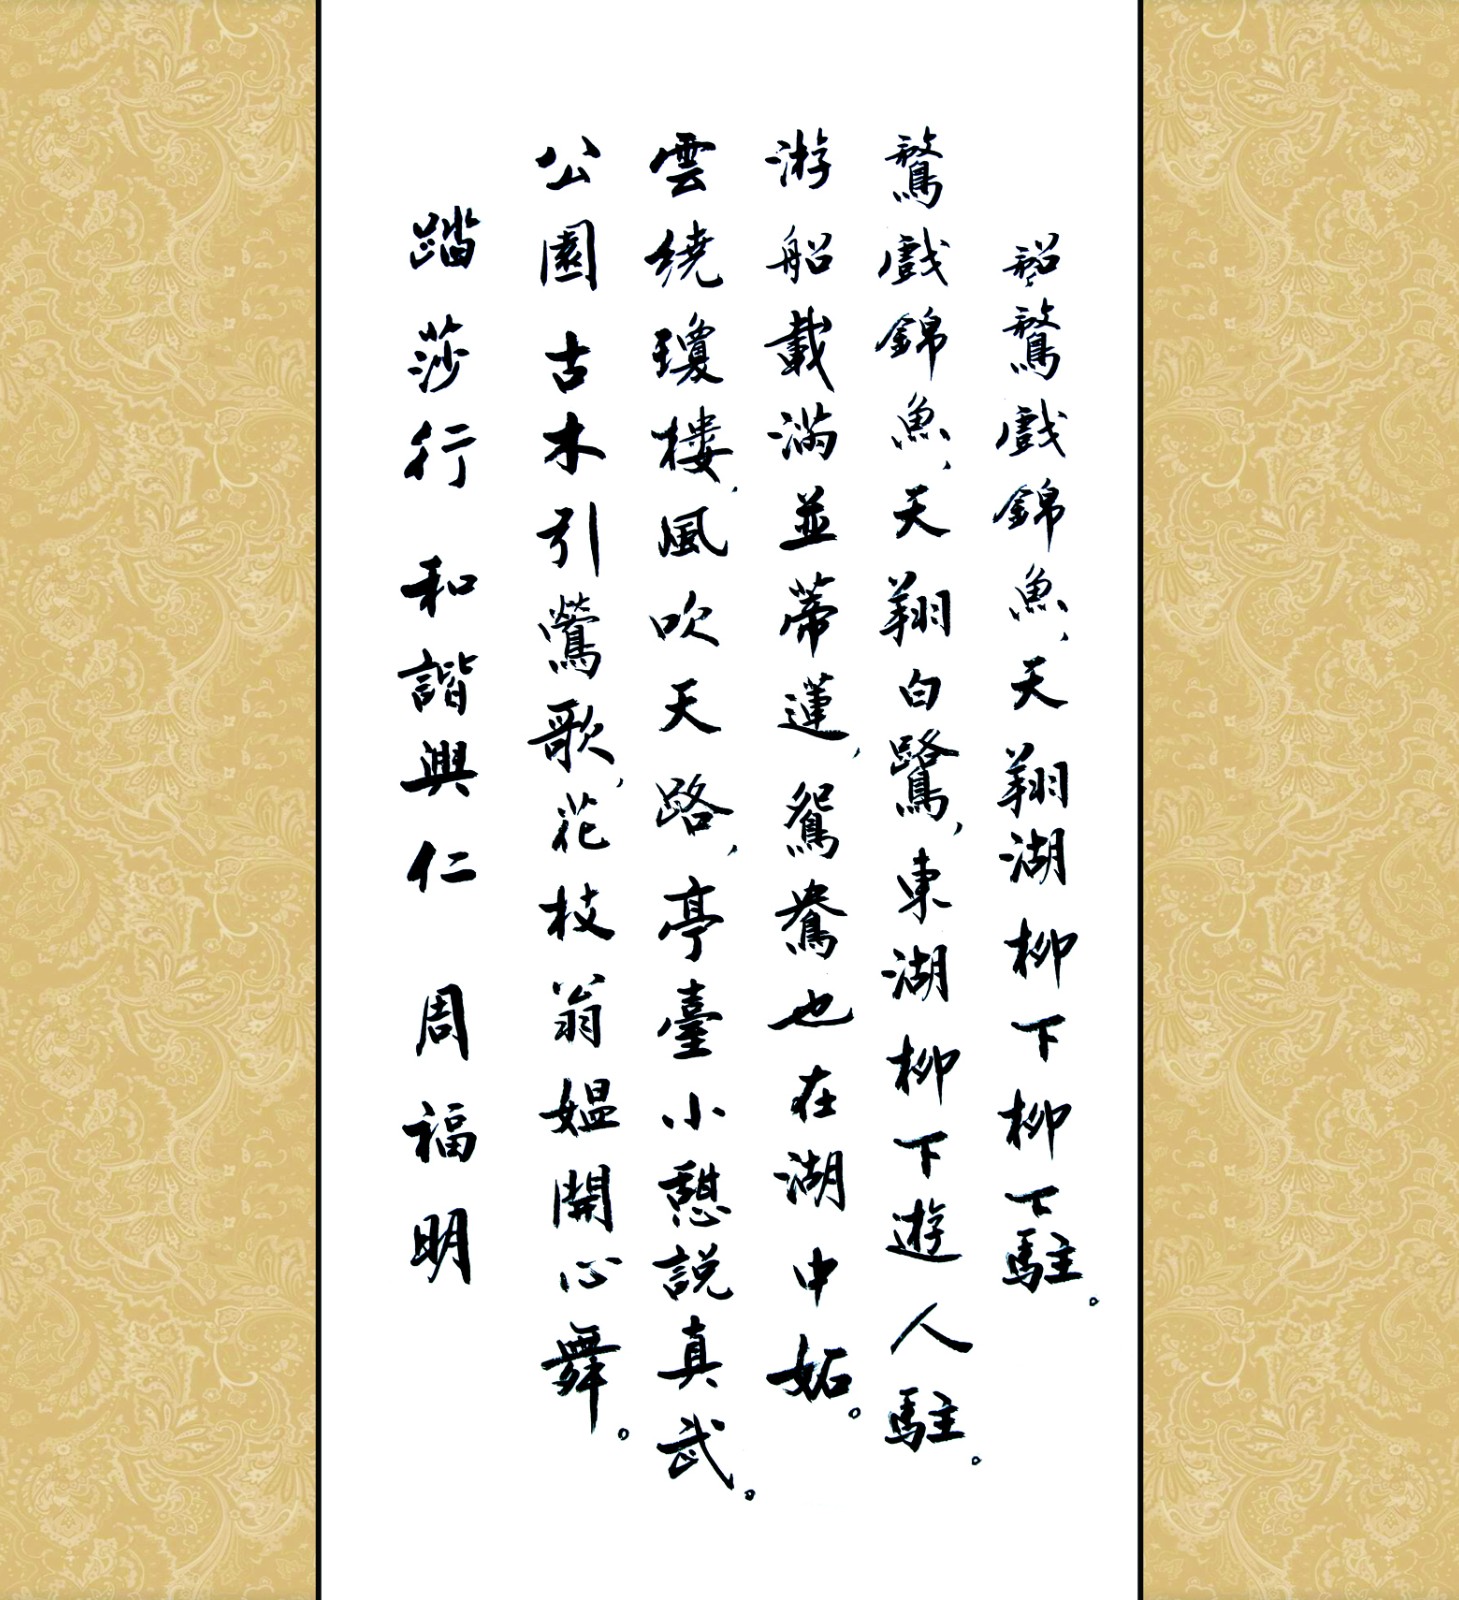 鶩戲錦魚,天翔湖柳下柳下駐。
鶩戲錦魚,天翔白鷺,東湖柳下遊人駐。
游船載滿並蒂蓮,鴛鴦也在湖中妬。
雲繞瓊樓,風吹天路,亭臺小憩説真武。
公園古木引鶯歌,花枝翁媼開心舞。
踏莎行 和諧興仁 周福明